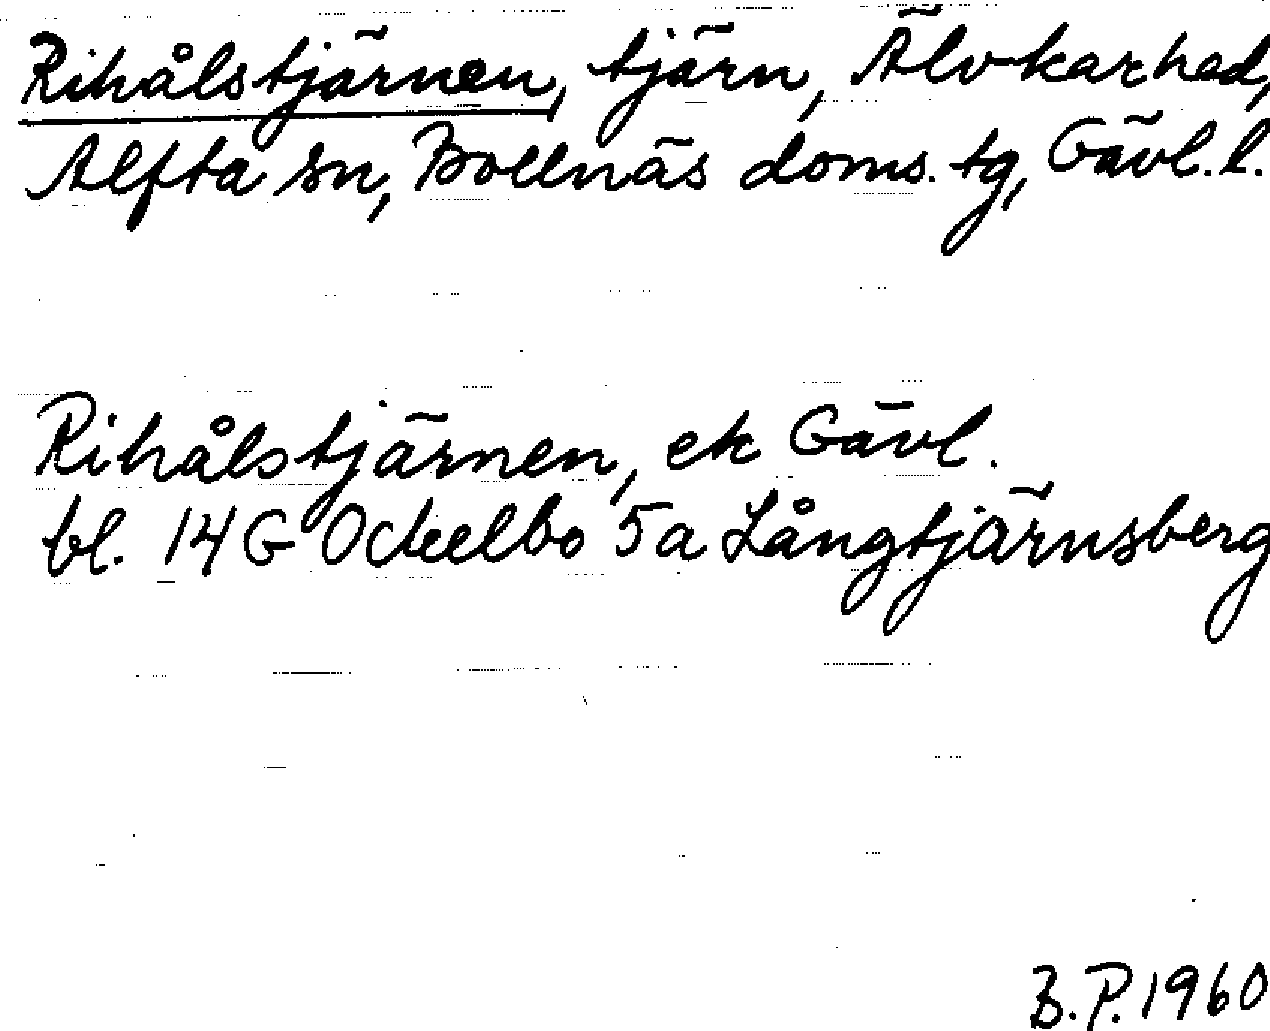 Rihålstjärnen, tjärn, Älvkarhed,
Alfta sn, Bollnäs doms. tg, Gävl. l.
Rihålstjärnen, ek Gävl.
bl. 14 G Ockelbo 5a Långtjärnsberg
B. P. 1960